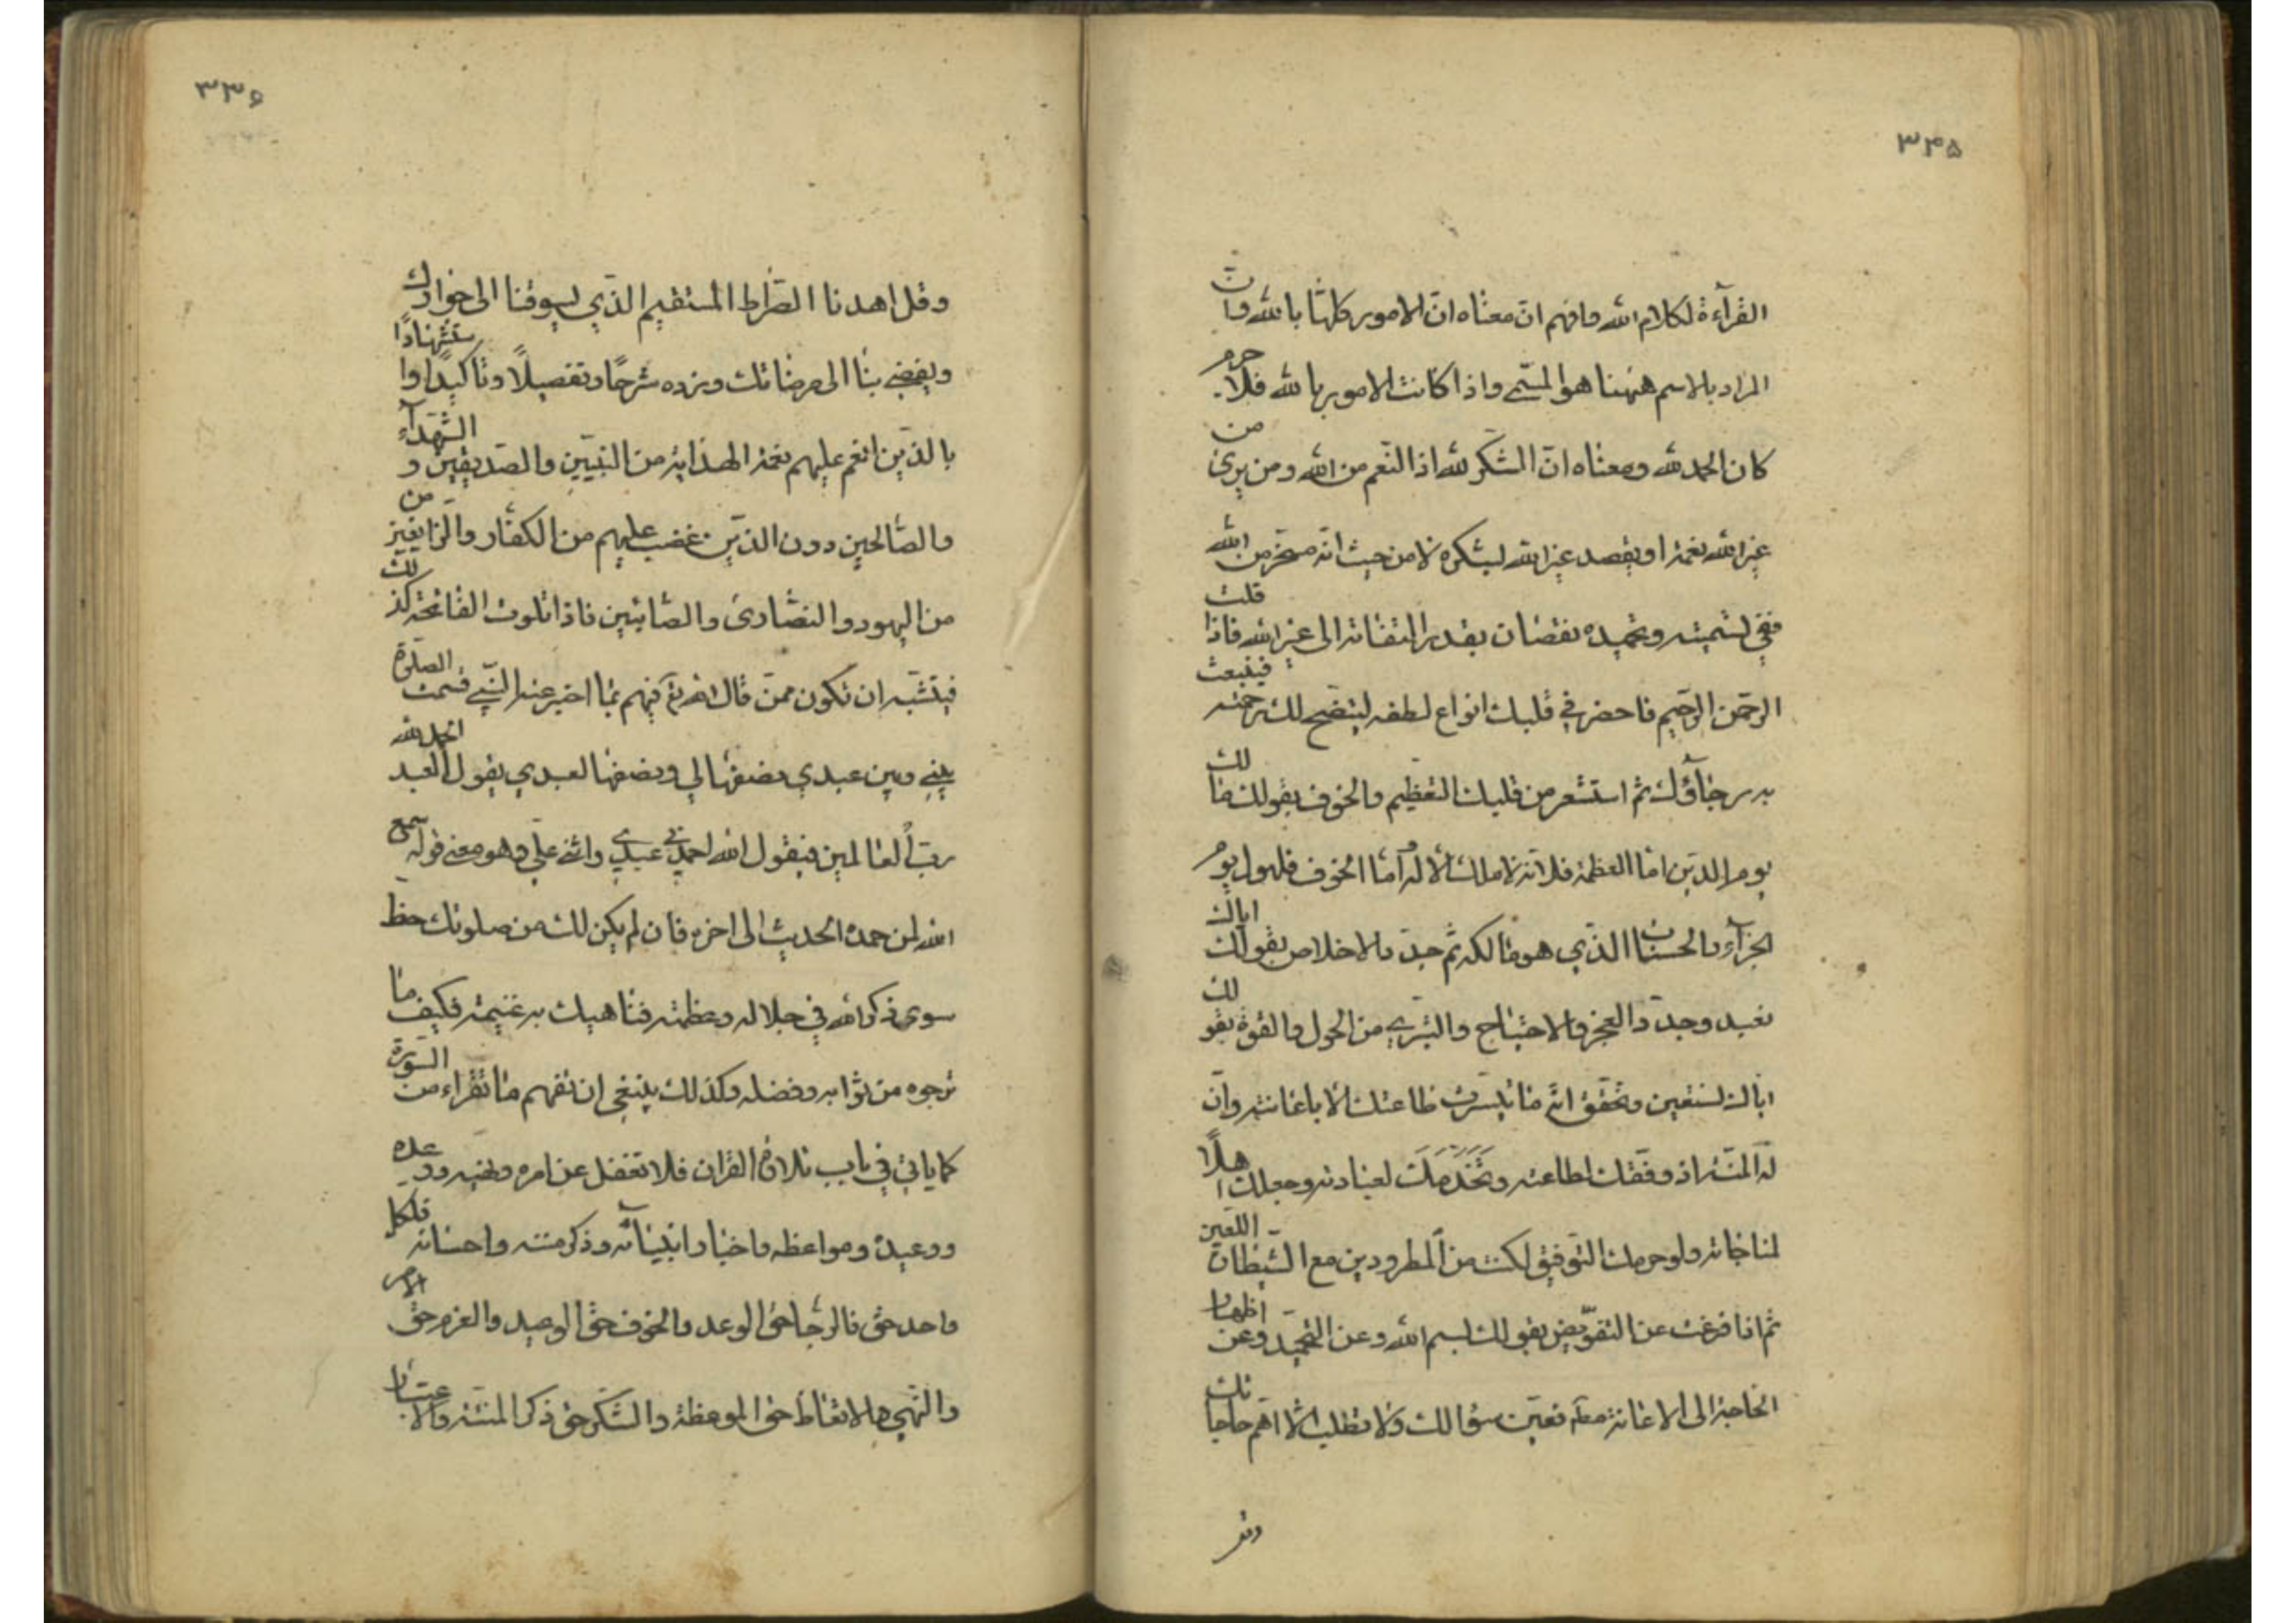 ٣٣۵
القرآءة لكلام الله وافهم انّ معناه انّ الامور كلّها بالله وانّ
المراد بالاسم هيهنا هو المسمّى واذا كانت الامور بالله فلا جرم
كان الحمد لله ومعناه انّ الشكر لله اذ النّعم من الله ومن يرى من
غير الله نعمة او يقصد غير الله بشكره لا من حيث انّه مسخّر من الله
ففي تسميته وتحميده نقصان بقدر التفاته الى غير الله فاذا قلت
الرّحمن الرّحيم فاحضر في قلبك انواع لطفه ليتّضح لك رحمته فينبعث
به رجاؤك ثم استشعر من قلبك التعظيم والخوف بقولك مالك
يوم الدّين امّا العظمة فلانّه لا ملك الّا له وامّا الخوف فلهول يوم
الجزآء والحساب الذّي هو مالكه ثم جدّد الاخلاص بقولك ايّاك
نعبد وجدّد العجز والاحتياج والتبرّي من الحول والقوّة بقولك
ايّاك نستعين وتحقّق انّه ما تيسّرت طاعتك الّا باعانته وانّ
له المنّة اذ وفّقك لطاعته وتخدمك لعبادته وجعلك اهلًا
لمناجاته ولو حرمك التوفيق لكنت من المطرودين مع الشّيطان اللّعين
ثم اذا فرغت عن التفويض بقولك بسم الله وعن التحميد وعن اظهار
الحاجة الى الاعانة مط فعيّن سؤالك ولا تطلب الّا اهمّ حاجاتك
وقل
٣٣۶
وقل اهدنا الصّراط المستقيم الذّي يسوقنا الى جوارك
ويفضي بنا الى مرضاتك وزده شرحًا وتفصيلًا وتاكيدًا واستشهادًا
بالذّين انعم عليهم نعمة الهداية من النبيّين والصّديقين والشّهدآء
والصّالحين دون الذّين غضب عليهم من الكفّار والزايغين من
من اليهود والنصارى والصّابئين فاذا تلوت الفاتحة كذلك
فيشبه ان تكون ممّن قال الله تع فيهم بما اخبر عنه النّبي قسمت الصلوة
بيني وبين عبدي نصفها لي ونصفها لعبدي يقول العبد الحمد لله
ربّ العالمين فيقول الله احمدني عبدي واثنى عليّ وهو معنى قوله سمع
الله لمن حمده الحديث الى اخره فان لم يكن لك من صلوتك حظّ
سوى ذكر الله في جلاله وعظمته فناهيك به غنيمة فكيف ما
ترجوه من ثوابه وفضله وكذلك ينبغي ان تفهم ما تقراء من السّورة
كما ياتي في باب تلاوة القران فلا تغفل عن امره ونهيه ووعده
ووعيده ومواعظه واخبار انبيائه وذكر مننه واحسانه فلكل
واحد حق فالرجا حق الوعد والخوف حق الوعيد والعزم حق الامر
والنّهي والاتعاظ حق الموعظة والشّكر حق ذكر المنّة والاعتبار